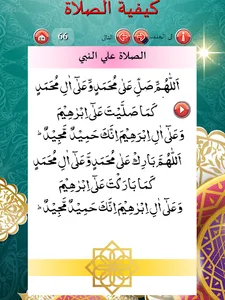 كيفية الصلاة
66
في الجنب
التال
الصلاة علي النبي
اَللّٰهُمَّ صَلِّ عَلٰى مُحَمَّدٍ وَّعَلٰٓى اٰلِ مُحَمَّدٍ
كَمَا صَلَّيْتَ عَلٰٓى اِبْرٰهِيْمَ
وَعَلٰٓى اٰلِ اِبْرٰهِيْمَ اِنَّكَ حَمِيْدٌ مَّجِيْدٌ ؕ
اَللّٰهُمَّ بَارِكْ عَلٰى مُحَمَّدٍ وَّعَلٰٓى اٰلِ مُحَمَّدٍ
كَمَا بَارَكْتَ عَلٰٓى اِبْرٰهِيْمَ
وَعَلٰٓى اٰلِ اِبْرٰهِيْمَ اِنَّكَ حَمِيْدٌ مَّجِيْدٌ ؕ